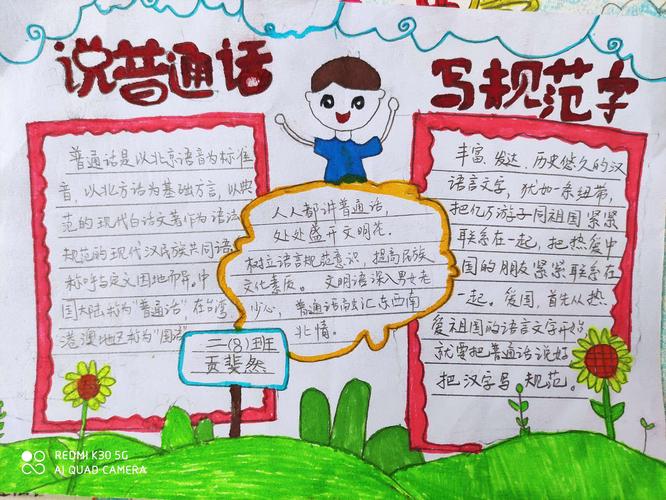 说普通话
写规范字
普通话是以北京语音为标准
音，以北方话为基础方言，以典
范的现代白话文著作为语法
规范的现代汉民族共同语
称呼与定义因地而异。中
国大陆称为“普通话”，在台湾
港澳地区称为“国语
人人都讲普通话，
处处盛开文明花。
树立语言规范意识，提高民族
文化素质。文明语深入男女老
少心，普通话高汇东西南
北情。
二(8)班
贡斐然
丰富、发达、历史悠久的汉
语言文字，犹如一条纽带，
把亿万游子同祖国紧紧
联系在一起，把热爱中
国的朋友紧紧联系在
一起。爱国，首先从热
爱祖国的语言文字开始，
就要把普通话说好，
把汉字写规范。
REDMI K30 5G
AI QUAD CAMERA